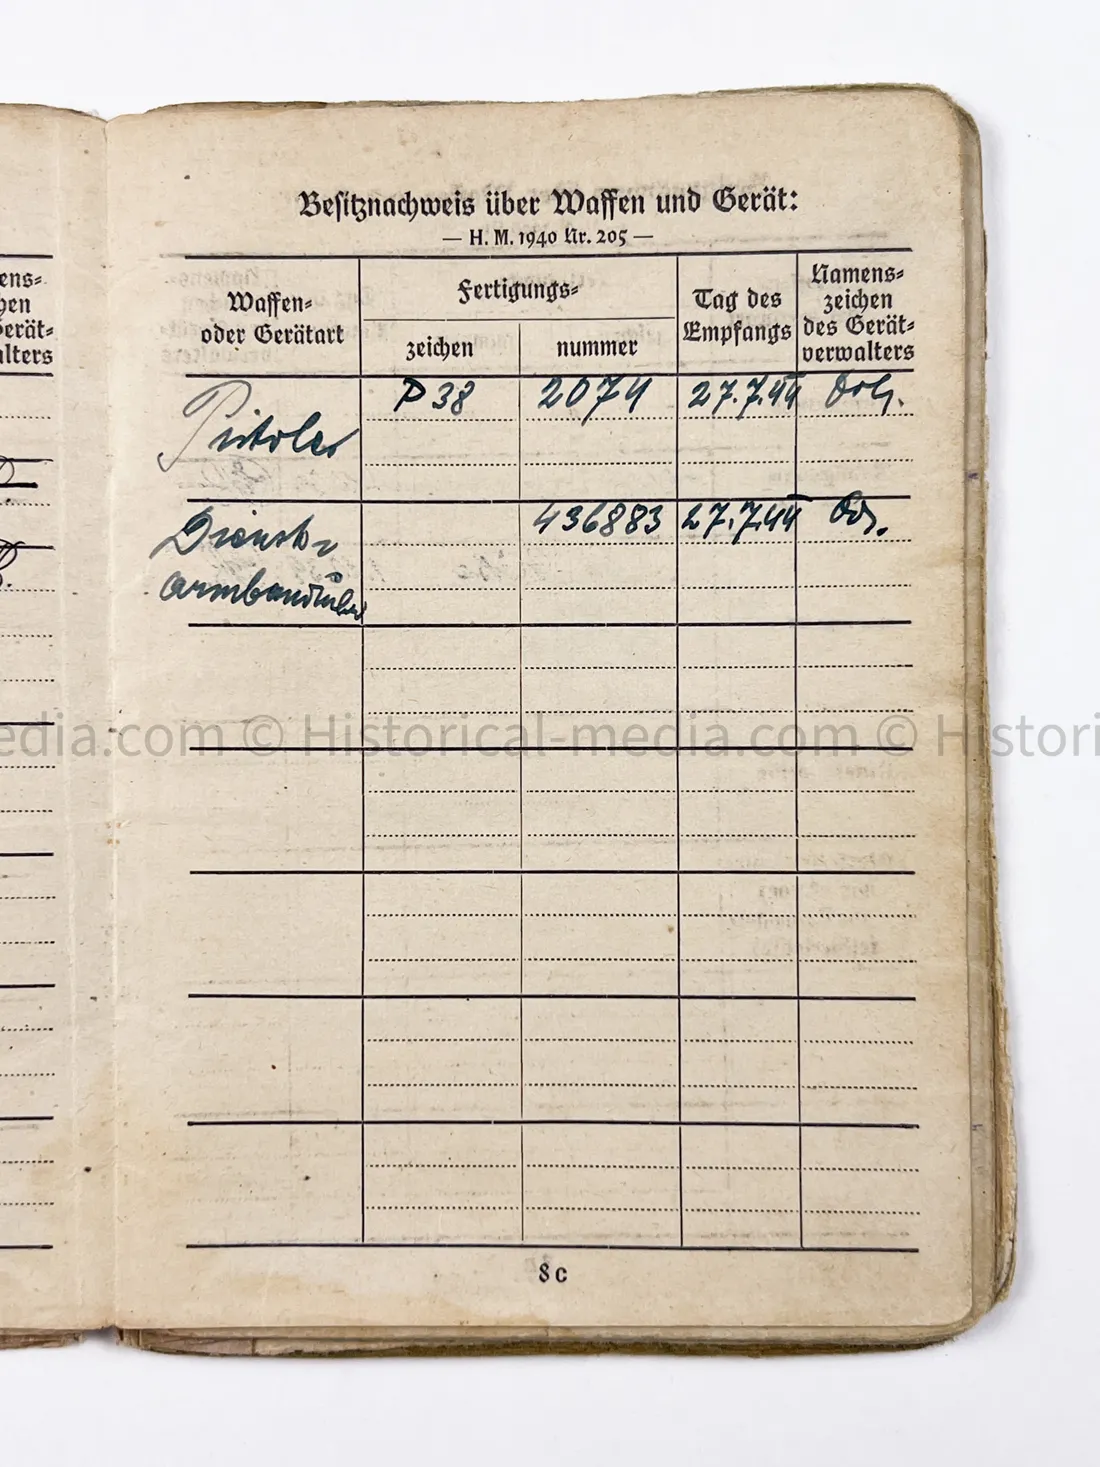 Besitznachweis über Waffen und Gerät:
— H. M. 1940 Nr. 205 —
ens-
hen
erät-
alters
Waffen-
oder Gerätart
Fertigungs-
zeichen
nummer
Tag des
Empfangs
Namens-
zeichen
des Gerät-
verwalters
Pistole P 38 2074 27.7.44
Dienst- 436883 27.7.44
armbanduhr
edia.com © Historical-media.com © Histori
8c